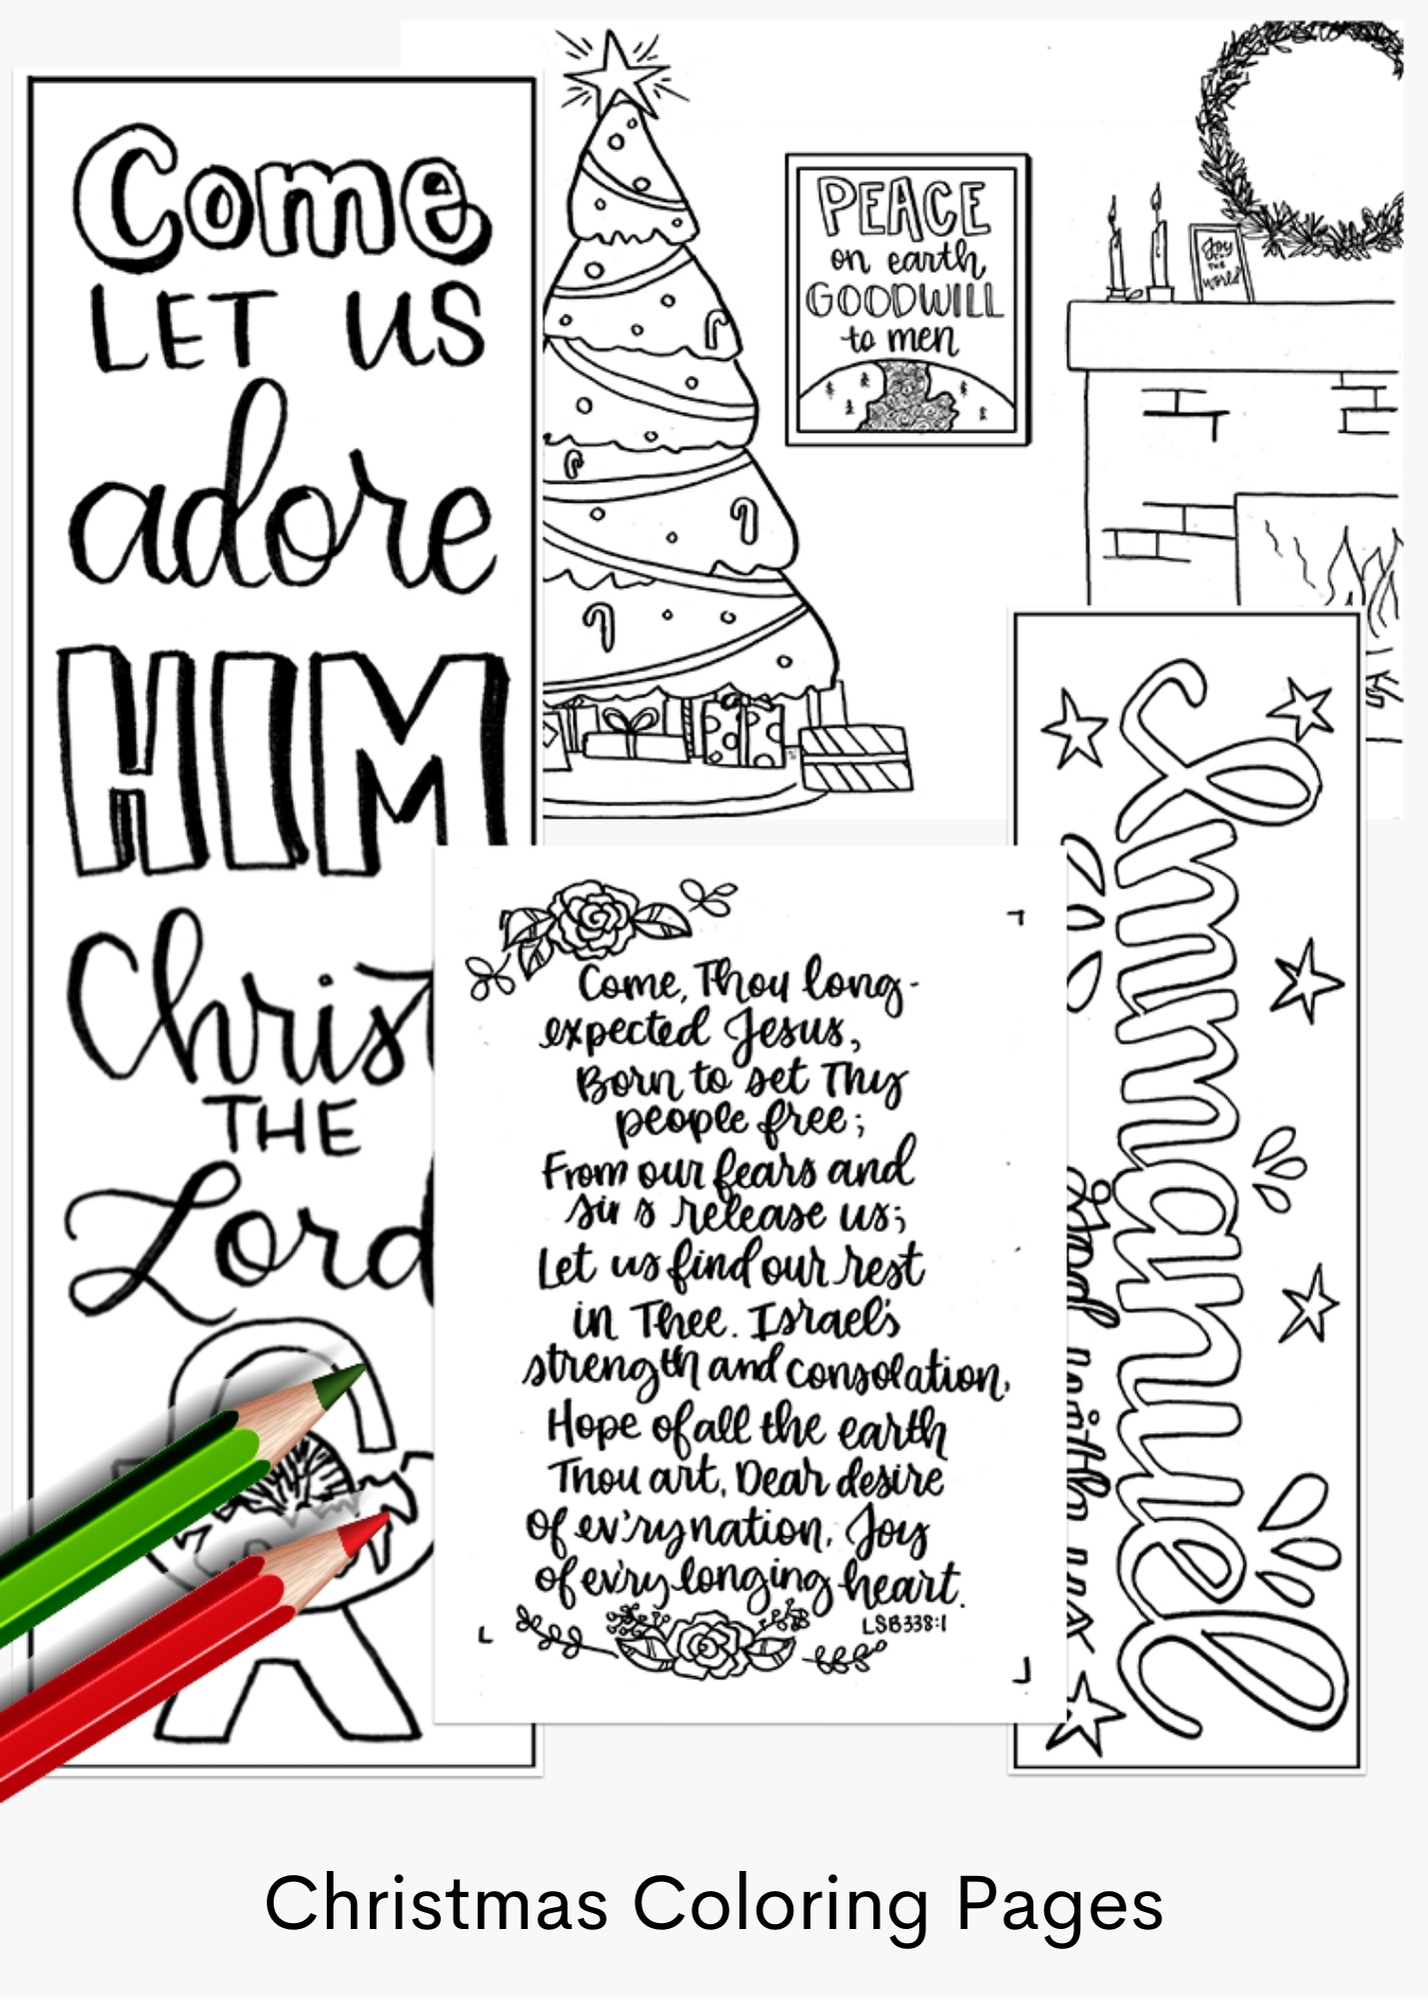 Come
LET US
adore
HIM
Christ
THE
Lord
PEACE
on earth
GOODWILL
to men
Joy
TO THE
World
Come, Thou long-
expected Jesus,
Born to set Thy
people free;
From our fears and
sins release us;
Let us find our rest
in Thee. Israel's
strength and consolation,
Hope of all the earth
Thou art, Dear desire
of ev'ry nation, Joy
of ev'ry longing heart.
LSB338:1
Immanuel
God with us
Christmas Coloring Pages